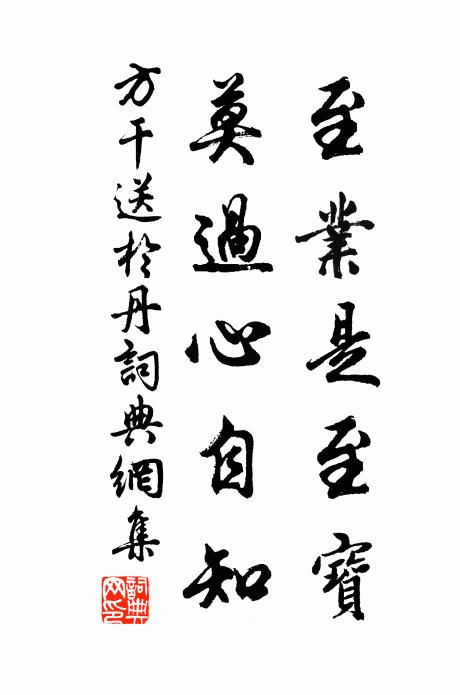 至業是至寶
莫過心自知
方干送於丹詞典網集
詞典网印